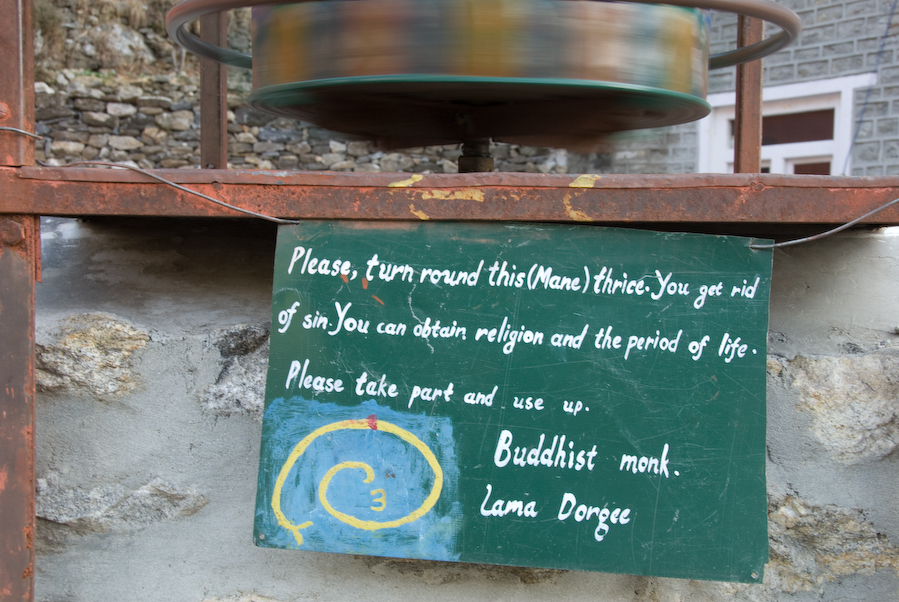 Please, turn round this (Mane) thrice. You get rid
of sin. You can obtain religion and the period of life.
Please take part and use up.
Buddhist monk.
Lama Dorgee